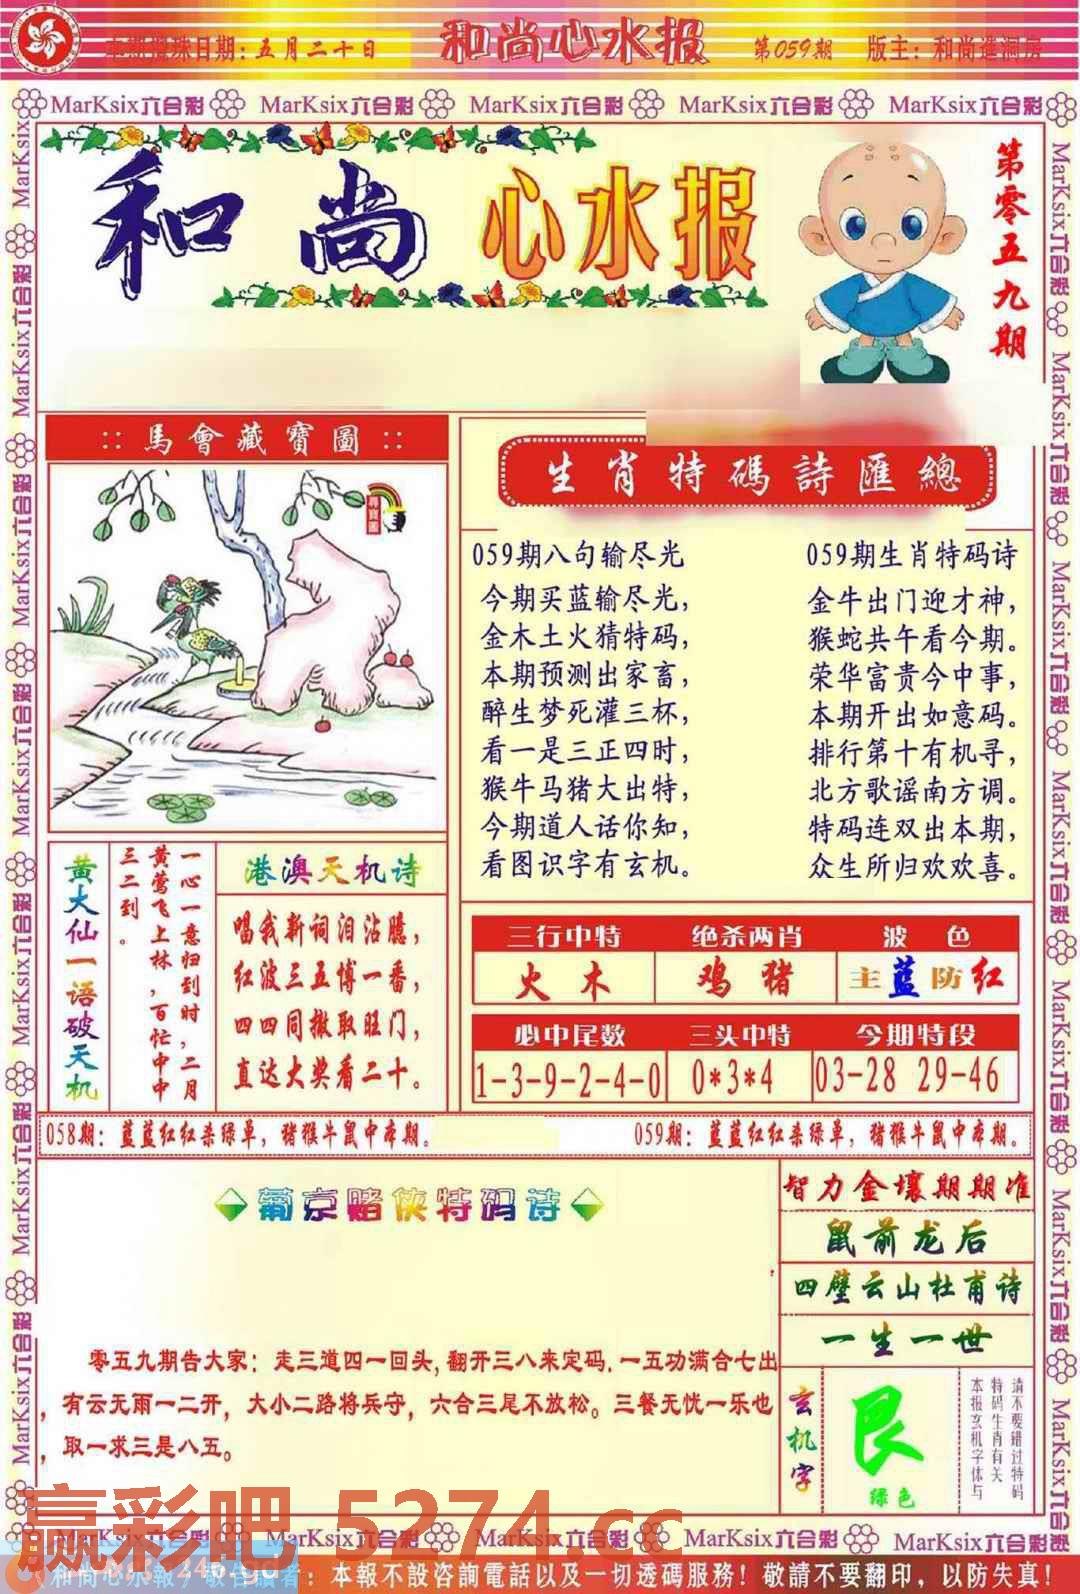 五月二十日
和尚心水报
第059期
版主：和尚進洞房
MarKsix六合彩 MarKsix六合彩 MarKsix六合彩 MarKsix六合彩 MarKsix六合彩
和尚 心水报
第零五九期
::馬會藏寶圖::
生肖特碼詩匯總
059期八句输尽光
今期买蓝输尽光，
金木土火猜特码，
本期预测出家畜，
醉生梦死灌三杯，
看一是三正四时，
猴牛马猪大出特，
今期道人话你知，
看图识字有玄机。
059期生肖特码诗
金牛出门迎才神，
猴蛇共午看今期。
荣华富贵今中事，
本期开出如意码。
排行第十有机寻，
北方歌谣南方调。
特码连双出本期，
众生所归欢欢喜。
黄大仙一语破天机
一心一意归到时，二月
黄莺飞上林，百忙中中
三二到。
港澳天机诗
唱我新词泪沾臆，
红波三五博一番，
四四同撤取旺门，
直达大奖看二十。
三行中特 绝杀两肖 波色
火木 鸡猪 主蓝防红
必中尾数 三头中特 今期特段
1-3-9-2-4-0 0*3*4 03-28 29-46
058期：蓝蓝红红杀绿单，猪猴牛鼠中本期。
059期：蓝蓝红红杀绿单，猪猴牛鼠中本期。
葡京赌侠特码诗
零五九期告大家：走三道四一回头,翻开三八来定码.一五功满合七出
，有云无雨一二开，大小二路将兵守，六合三尾不放松。三餐无忧一乐也
，取一求三是八五。
智力金壤期期准
鼠前龙后
四壁云山杜甫诗
一生一世
玄机字
艮
绿色
请不要错过特码
特码生肖有关
本报玄机字体与
赢彩吧 5274.cc
MarKsix六合彩 MarKsix六合彩 MarKsix六合彩 MarKsix六合彩
：本報不設咨詢電話以及一切透碼服務！敬請不要翻印，以防失真！